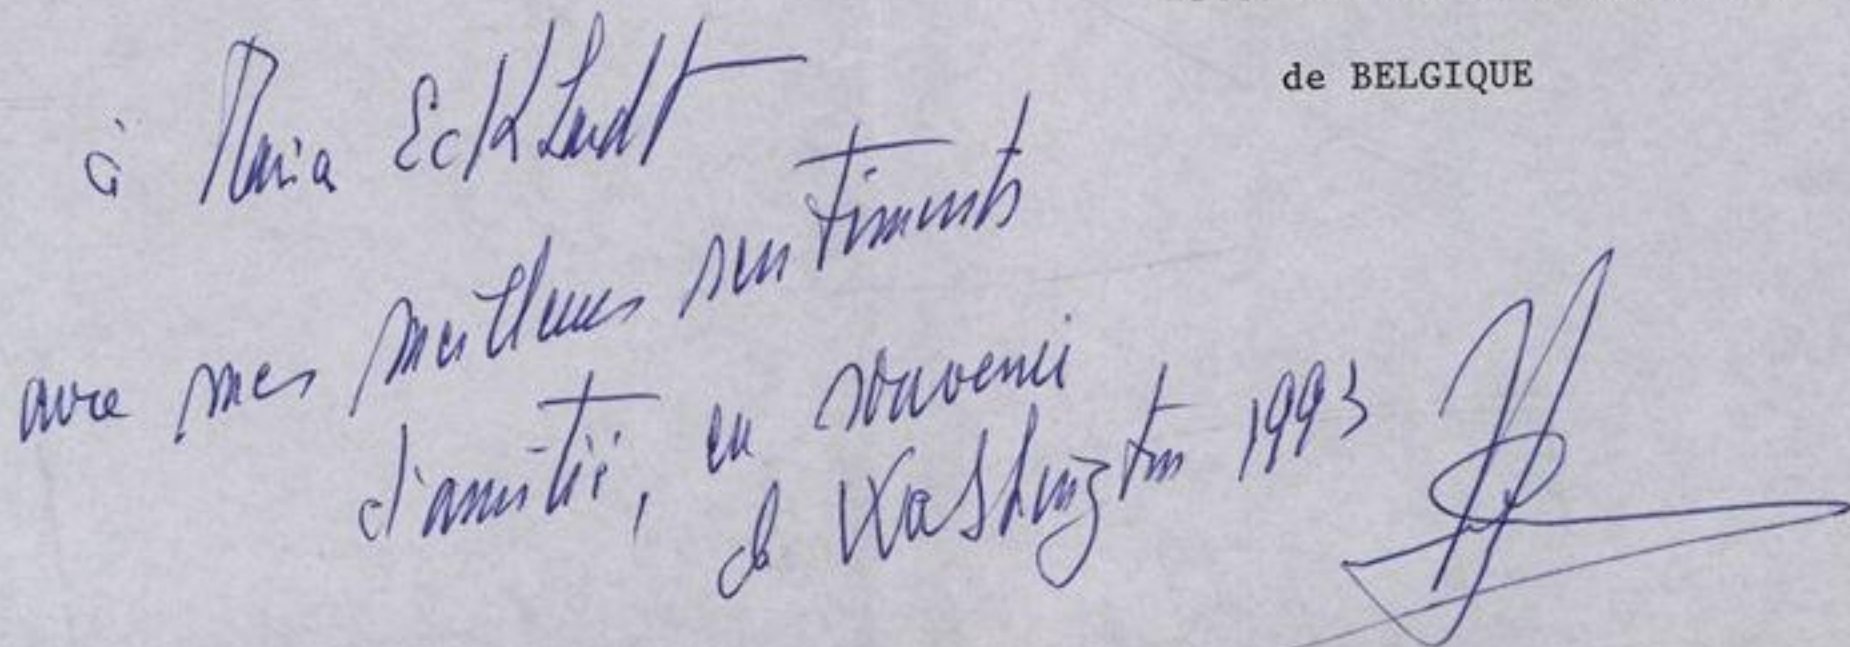 de BELGIQUE
à Maria Eckhardt
avec mes meilleurs sentiments
d'amitié, en souvenir
de Washington 1993